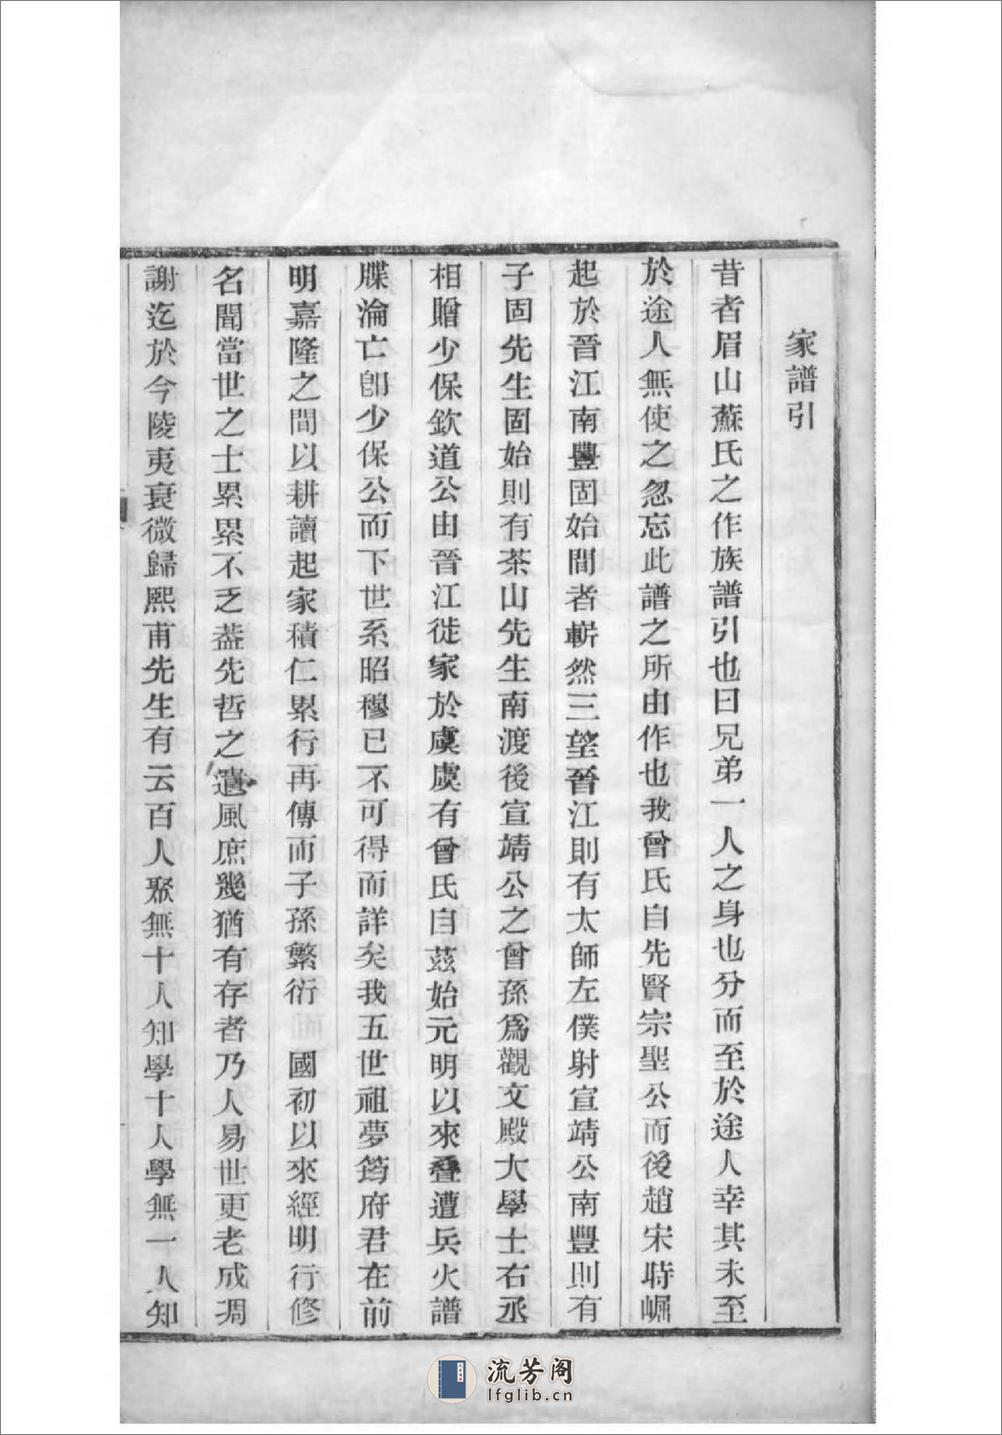 家譜引
昔者眉山蘇氏之作族譜引也曰兄弟一人之身也分而至於途人幸其未至
於途人無使之忽忘此譜之所由作也我曾氏自先賢宗聖公而後趙宋時崛
起於晉江南豐固始間者嶄然三望晉江則有太師左僕射宣靖公南豐則有
子固先生固始則有茶山先生南渡後宣靖公之曾孫爲觀文殿大學士右丞
相贈少保欽道公由晉江徙家於虞虞有曾氏自茲始元明以來叠遭兵火譜
牒淪亡卽少保公而下世系昭穆已不可得而詳矣我五世祖夢筠府君在前
明嘉隆之間以耕讀起家積仁累行再傳而子孫繁衍　國初以來經明行修
名聞當世之士累累不乏葢先哲之遺風庶幾猶有存者乃人易世更老成凋
謝迄於今陵夷衰微歸熙甫先生有云百人聚無十人知學十人學無一人知
流芳阁
lfglib.cn